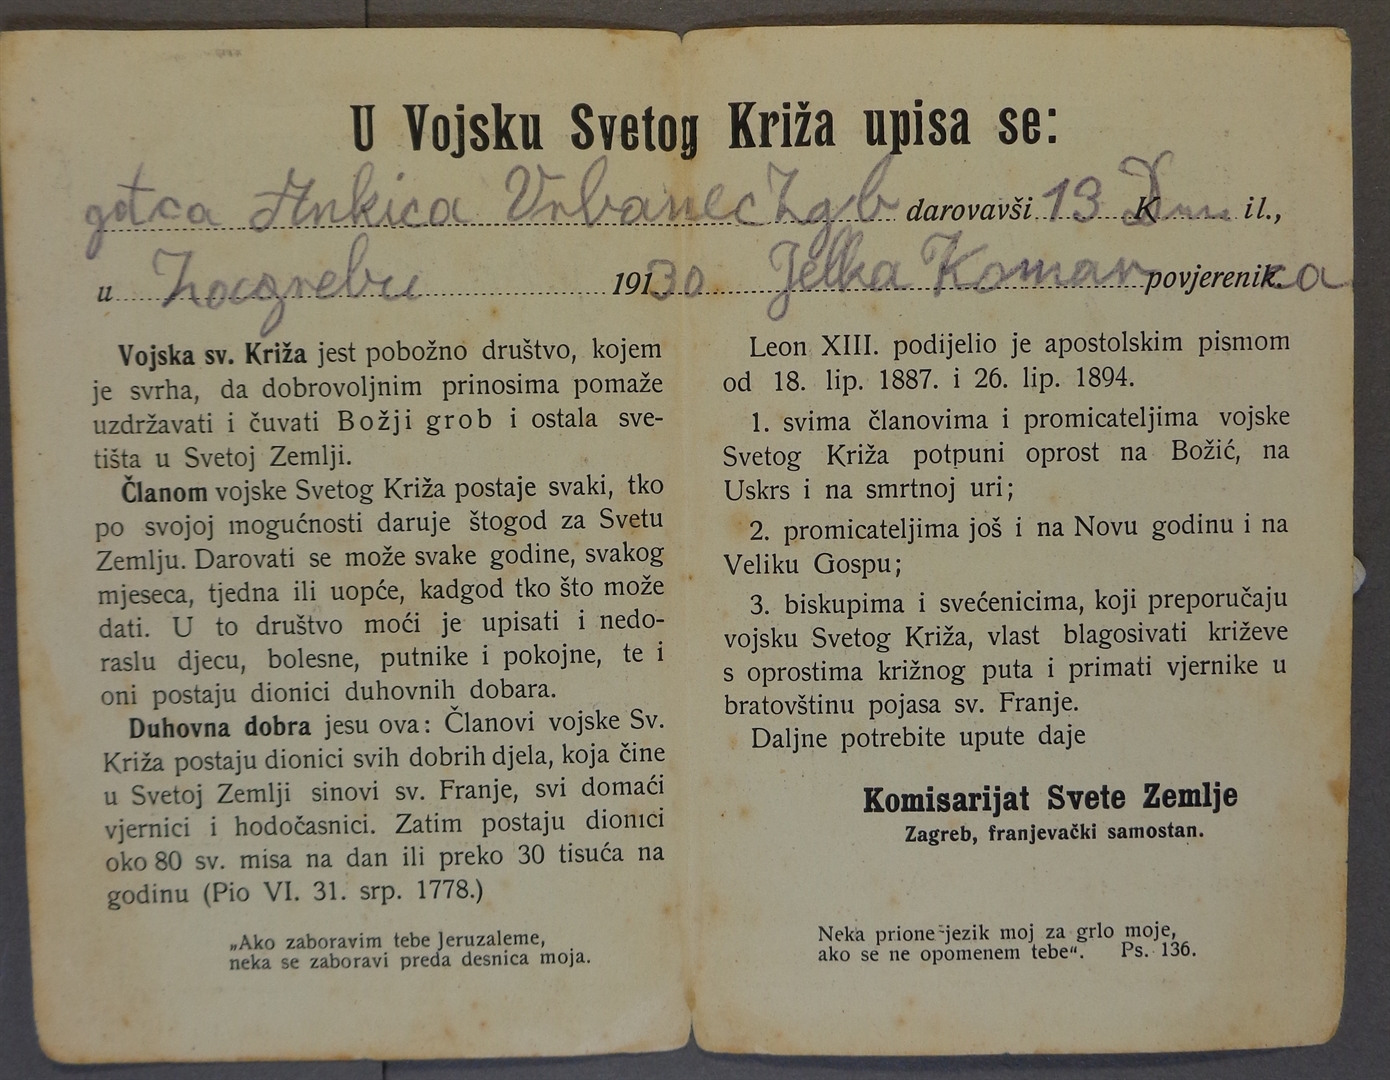 U Vojsku Svetog Križa upisa se:
gdca Ankica Vrbanec Zgb darovavši 13 K Din il.,
u Zagrebu 19130 Jelka Komar povjerenik.ca
Vojska sv. Križa jest pobožno društvo, kojem
je svrha, da dobrovoljnim prinosima pomaže
uzdržavati i čuvati Božji grob i ostala sve-
tišta u Svetoj Zemlji.
Članom vojske Svetog Križa postaje svaki, tko
po svojoj mogućnosti daruje štogod za Svetu
Zemlju. Darovati se može svake godine, svakog
mjeseca, tjedna ili uopće, kadgod tko što može
dati. U to društvo moći je upisati i nedo-
raslu djecu, bolesne, putnike i pokojne, te i
oni postaju dionici duhovnih dobara.
Duhovna dobra jesu ova: Članovi vojske Sv.
Križa postaju dionici svih dobrih djela, koja čine
u Svetoj Zemlji sinovi sv. Franje, svi domaći
vjernici i hodočasnici. Zatim postaju dionici
oko 80 sv. misa na dan ili preko 30 tisuća na
godinu (Pio VI. 31. srp. 1778.)
„Ako zaboravim tebe Jeruzaleme,
neka se zaboravi preda desnica moja.
Leon XIII. podijelio je apostolskim pismom
od 18. lip. 1887. i 26. lip. 1894.
1. svima članovima i promicateljima vojske
Svetog Križa potpuni oprost na Božić, na
Uskrs i na smrtnoj uri;
2. promicateljima još i na Novu godinu i na
Veliku Gospu;
3. biskupima i svećenicima, koji preporučaju
vojsku Svetog Križa, vlast blagosivati križeve
s oprostima križnog puta i primati vjernike u
bratovštinu pojasa sv. Franje.
Daljne potrebite upute daje
Komisarijat Svete Zemlje
Zagreb, franjevački samostan.
Neka prione jezik moj za grlo moje,
ako se ne opomenem tebe“. Ps. 136.